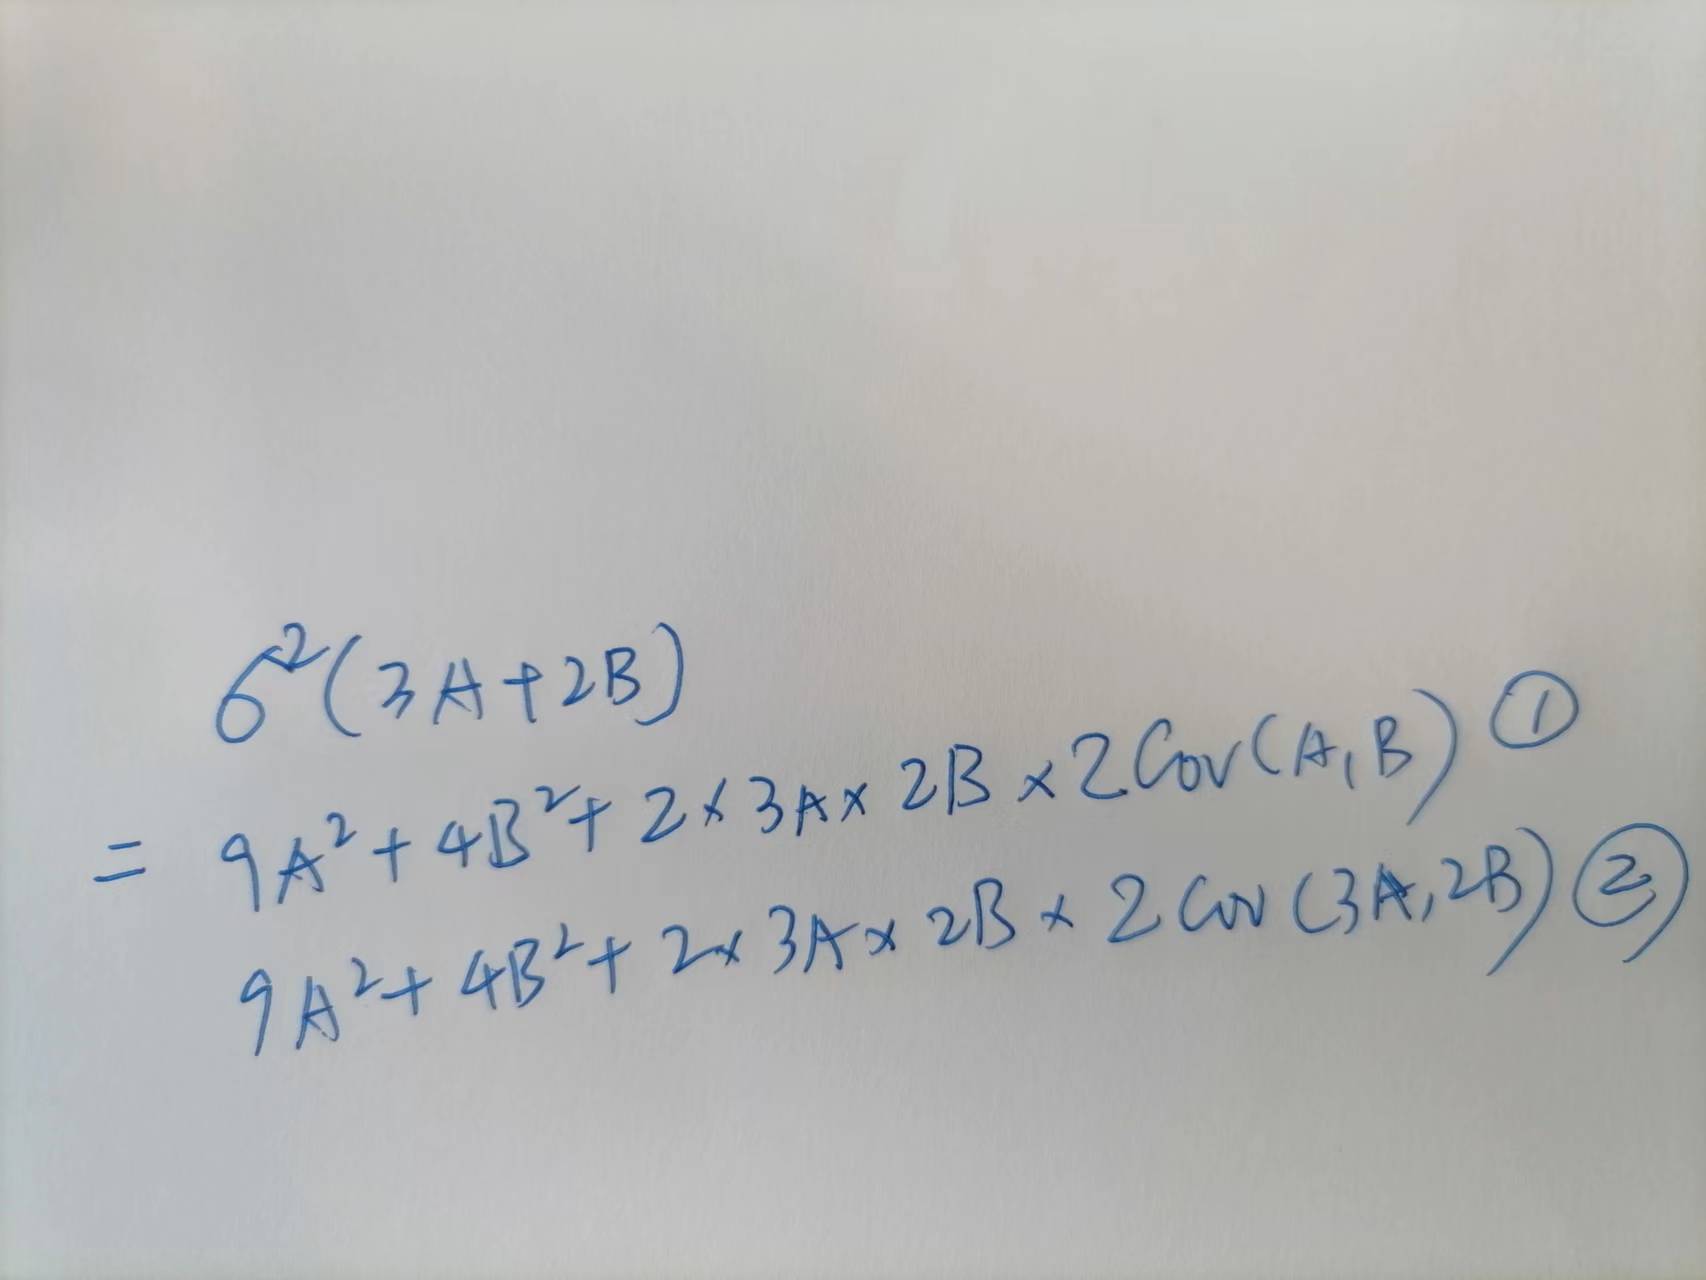 σ²(3A+2B)
= 9A²+4B²+2×3A×2B×2Cov(A,B) ①
9A²+4B²+2×3A×2B×2Cov(3A,2B) ②